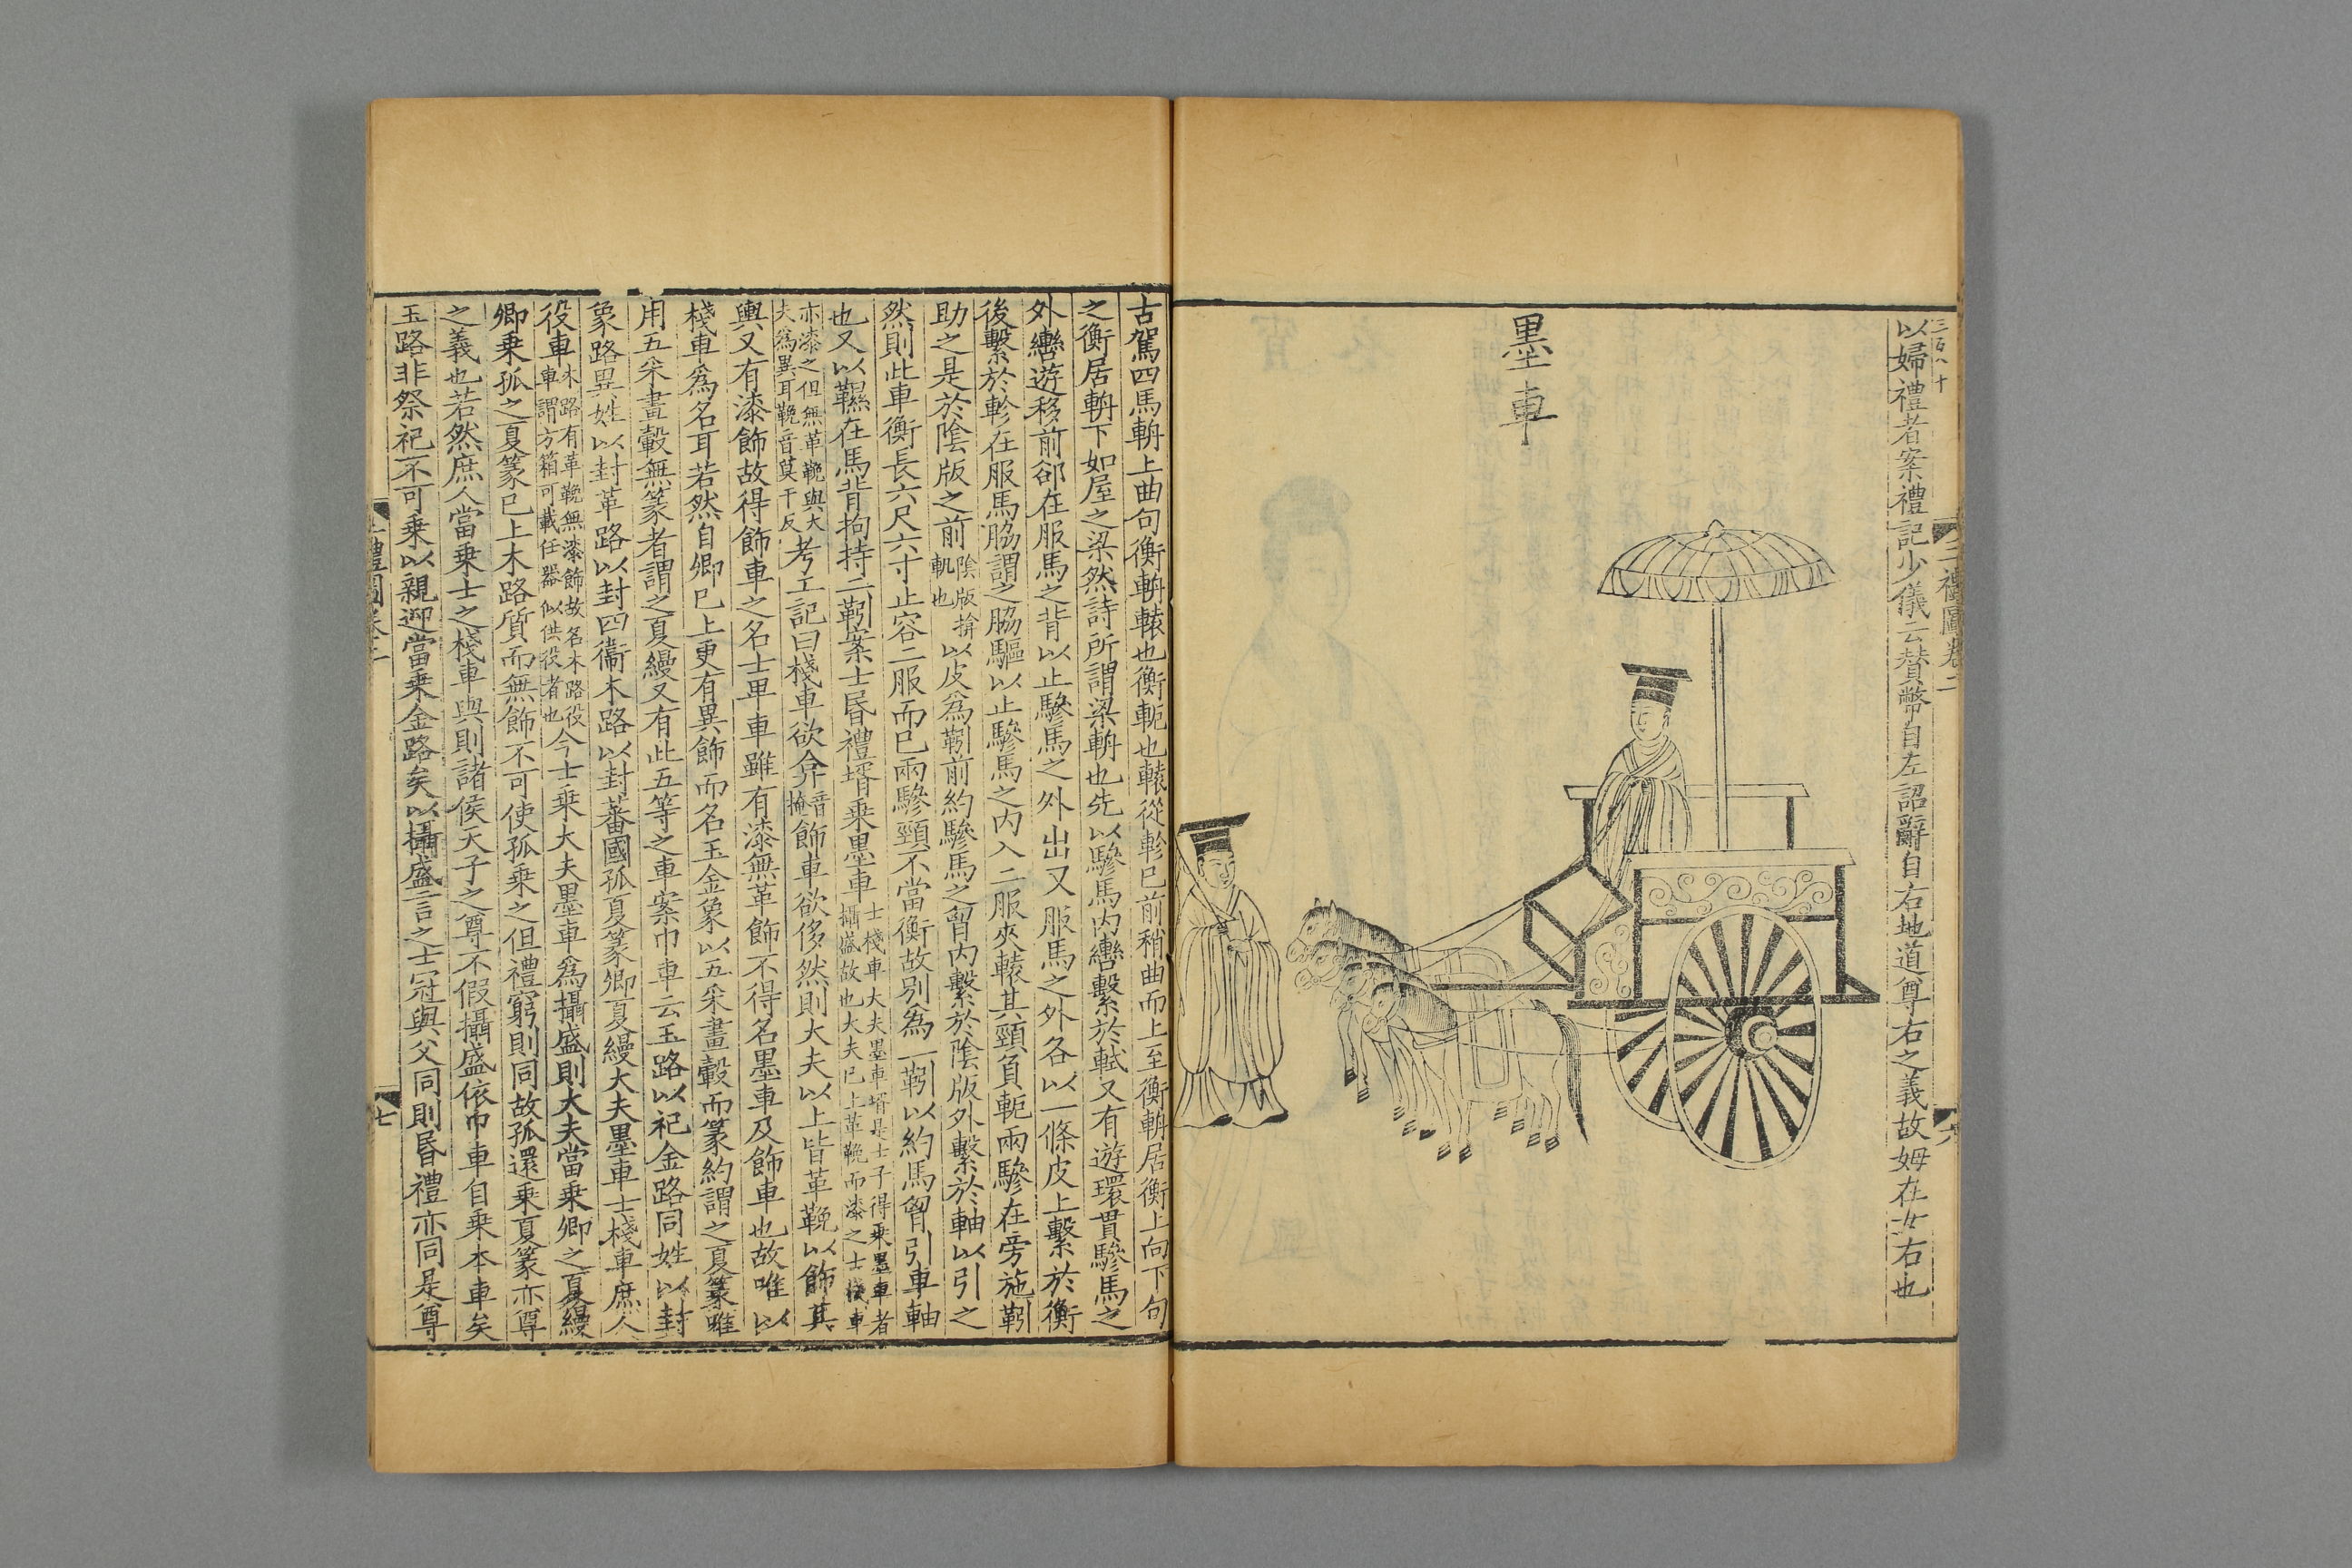 三百八十
三禮圖卷二
六
以婦禮者案禮記少儀云贊幣自左詔辭自右地道尊右之義故姆在女右也
墨車
古駕四馬輈上曲句衡輈轅也衡軛也轅從軫已前稍曲而上至衡輈居衡上向下句
之衡居輈下如屋之梁然詩所謂梁輈也先以驂馬內轡繫於軾又有遊環貫驂馬之
外轡遊移前郤在服馬之背以止驂馬之外出又服馬之外各以一條皮上繫於衡
後繫於軫在服馬脇謂之脇驅以止驂馬之內入二服夾轅其頸負軛兩驂在旁施靷
助之是於陰版之前
陰版揜
軌也
以皮為靷前約驂馬之胷內繫於陰版外繫於軸以引之
然則此車衡長六尺六寸止容二服而已兩驂頸不當衡故別為一靷以約馬胷引車軸
也又以䪌在馬背拘持二靷案士昏禮壻乗墨車
士棧車大夫墨車壻是士子得乗墨車者
攝盛故也大夫已上革鞔而漆之士棧車
亦漆之但無革鞔與大
夫為異耳鞔音莫干反
考工記曰棧車欲弇
音
掩
飾車欲侈然則大夫以上皆革鞔以飾其
輿又有漆飾故得飾車之名士卑車雖有漆無革飾不得名墨車及飾車也故唯以
棧車為名耳若然自卿已上更有異飾而名玉金象以五采畫轂而篆約謂之夏篆唯
用五采畫轂無篆者謂之夏縵又有此五等之車案巾車云玉路以祀金路同姓以封
象路異姓以封革路以封四衞木路以封蕃國孤夏篆卿夏縵大夫墨車士棧車庶人
役車
木路有革鞔無漆飾故名木路役
車謂方箱可載任器似供役者也
今士乗大夫墨車為攝盛則大夫當乗卿之夏縵
卿乗孤之夏篆已上木路質而無飾不可使孤乗之但禮窮則同故孤還乗夏篆亦尊
之義也若然庶人當乗士之棧車與則諸侯天子之尊不假攝盛依巾車自乗本車矣
玉路非祭祀不可乗以親迎當乗金路矣以攝盛言之士冠與父同則昏禮亦同是尊
三禮圖卷二
七